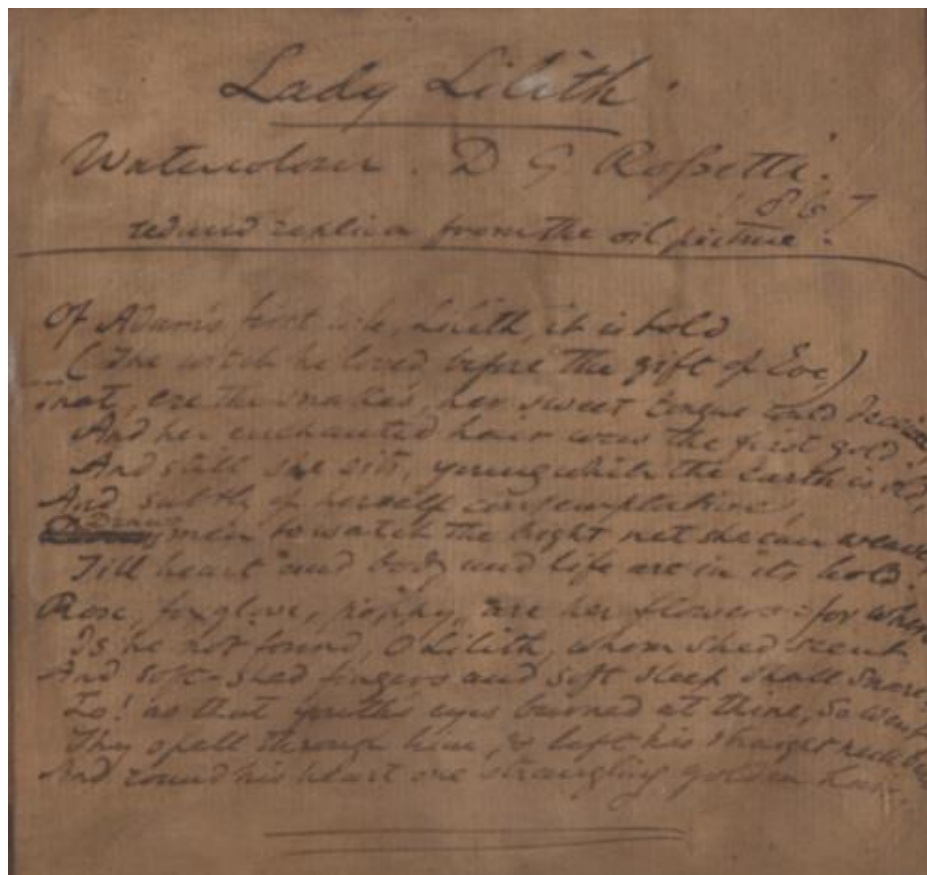 Lady Lilith.
Watercolour. D G Rossetti.
1867
reduced replica from the oil picture:
Of Adam's first wife, Lilith, it is told
(The witch he loved before the gift of Eve)
That, ere the snake's, her sweet tongue could deceive
And her enchanted hair was the first gold,
And still she sits, young while the earth is old,
And, subtly of herself contemplative,
Draws men to watch the bright net she can weave,
Till heart and body and life are in its hold.
Rose, foxglove, poppy, are her flowers: for where
Is he not found, O Lilith, whom shed scent
And soft-shed fingers and soft sleep shall snare?
Lo! as that youth's eyes burned at thine, so went
Thy spell through him, & left his straight neck bent
And round his heart one strangling golden hair.